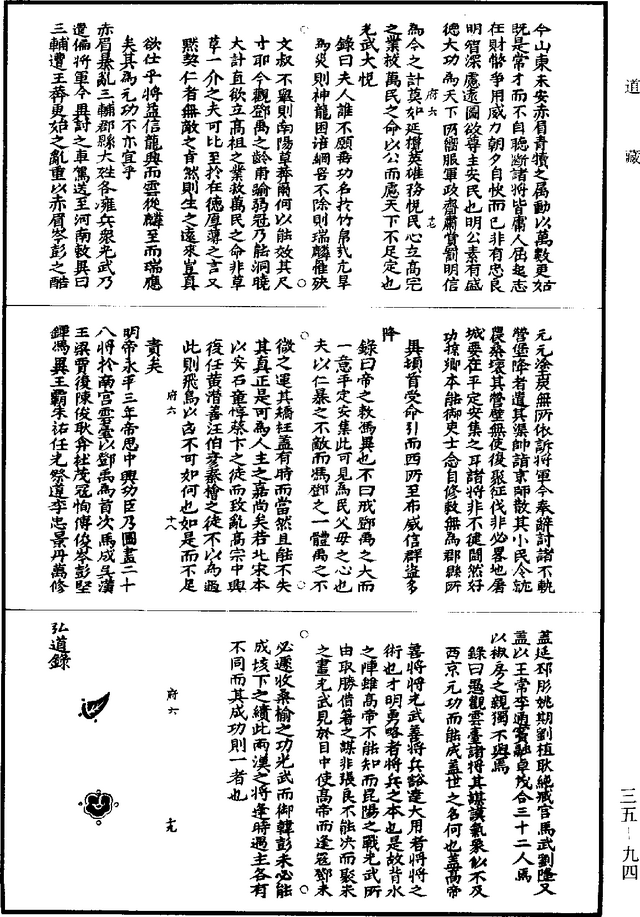 道藏
今山東未安赤眉青犢之屬動以萬數更始
既是常才而不自聽斷諸將皆庸人屈起志
在財幣爭用威力朝夕自快而已非有忠良
明智深慮遠圖欲尊主安民也明公素有盛
德大功為天下所嚮服軍政齊肅賞罰明信
府六 十七
為今之計莫如延攬英雄務悅民心立高宗
之業救萬民之命以公而慮天下不足定也
光武大悅
錄曰夫人誰不願垂功名於竹帛哉亢旱
為災則神龍困涪網罟不除則瑞麟罹殃
文叔不舉則南陽草莽爾何以能效其尺
寸耶今觀鄧禹之齡甫踰弱冠乃能洞曉
大計直欲立高祖之業救萬民之命非草
草一介之夫可比至於在德厚薄之言又
默契仁者無敵之旨然則生之遠來豈真
欲仕乎將益信龍興而雲從麟至而瑞應
矣其為元功不亦宜乎
赤眉暴亂三輔郡縣大姓各擁兵眾光武乃
遣偏將軍今異討之車駕送至河南敕異曰
三輔遭王莽更始之亂重以赤眉岑彭之酷
元元塗炭無所依訴將軍今奉辭討諸不軌
營堡降者遣其渠帥詣京師散其小民令就
農桑壞其營壁無使復聚征伐非必略地屠
城要在平定安集之耳諸將非不健鬭然好
功掠卿本能御吏士念自修敕無為郡縣所
異頓首受命引而西所至布威信群盜多
降
錄曰帝之敕馮異也不曰戒鄧禹之大而
一意平定安集此可見為民父母之心也
夫以仁暴之不敵而馮鄧之一體禹之不
徵之運其矯枉蓋有時而當然且能不失
其真正是可為人主之嘉尚矣若北宋本
以安石童惇蔡卞之徒而致亂高宗中興
復任黃潛善汪伯彥秦檜之徒不以為過
府六 十八
此則飛鳥以凶不可如何也如是而不足
責矣
明帝永平三年帝思中興功臣乃圖畫二十
八將於南宮雲臺以鄧禹為首次馬成吳漢
王梁賈復陳俊耿弇杜茂寇恂傅俊岑彭堅
鐔馮異王霸朱祐任光祭遵李忠景丹萬修
蓋延邳彤姚期劉植耿純臧宮馬武劉隆又
益以王常李通竇融卓茂合三十二人馬
以椒房之親獨不與焉
錄曰愚觀雲臺諸將其謀謨氣象似不及
西京元功而能成蓋世之名何也蓋高帝
善將將光武善將兵豁達大用者將將之
術也才明勇略者將兵之本也是故背水
之陣雖高帝不能知而昆陽之戰光武所
由取勝借箸之謀非張良不能決而聚米
之畫光武見於目中使高帝而逢寇鄧未
必遽收桑榆之功光武而御韓彭未必能
成垓下之績此兩漢之將逢時遇主各有
不同而其成功則一者也
府六 十九
弘道錄
三五—九四